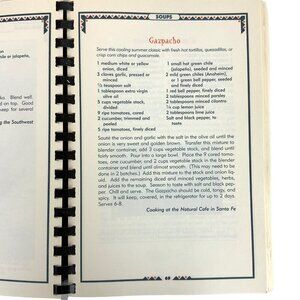 SOUPS
ks. Blend well.
d on top. Good
keep for several
ng the Southwest
Gazpacho
Serve this cooling summer classic with fresh hot tortillas, quesadillas, or
crisp corn chips and guacamole.
1 medium white or yellow
onion, diced
3 cloves garlic, pressed or
minced
½ teaspoon salt
1 tablespoon extra virgin
olive oil
5 cups vegetable stock,
divided
9 ripe tomatoes, cored
2 cucumber, trimmed and
peeled
5 ripe tomatoes, finely diced
1 small hot green chile
(jalapeño), seeded and minced
2 mild green chiles (Anaheim),
or 1 green bell pepper, seeded
and finely diced
1 red bell pepper, finely diced
2 tablespoons minced parsley
2 tablespoons minced cilantro
¼ cup lemon juice
2 tablespoons lime juice
Salt and black pepper, to
taste
Sauté the onion and garlic with the salt in the olive oil until the
onion is very sweet and golden brown. Transfer this mixture to
blender container; add 3 cups vegetable stock, and blend until
fairly smooth. Pour into a large bowl. Place the 9 cored toma-
toes, one cucumber, and 2 cups vegetable stock in the blender
container and blend until almost smooth. (This may need to be
done in 2 batches.) Add this mixture to the stock and onion liq-
uid. Add the remaining diced and minced vegetables, herbs,
and juices to the soup. Season to taste with salt and black pep-
per. Chill and serve. The Gazpacho should be cold, tangy, and
spicy. It will keep, covered, in the refrigerator for up to 2 days.
Serves 6-8.
Cooking at the Natural Cafe in Santa Fe
68